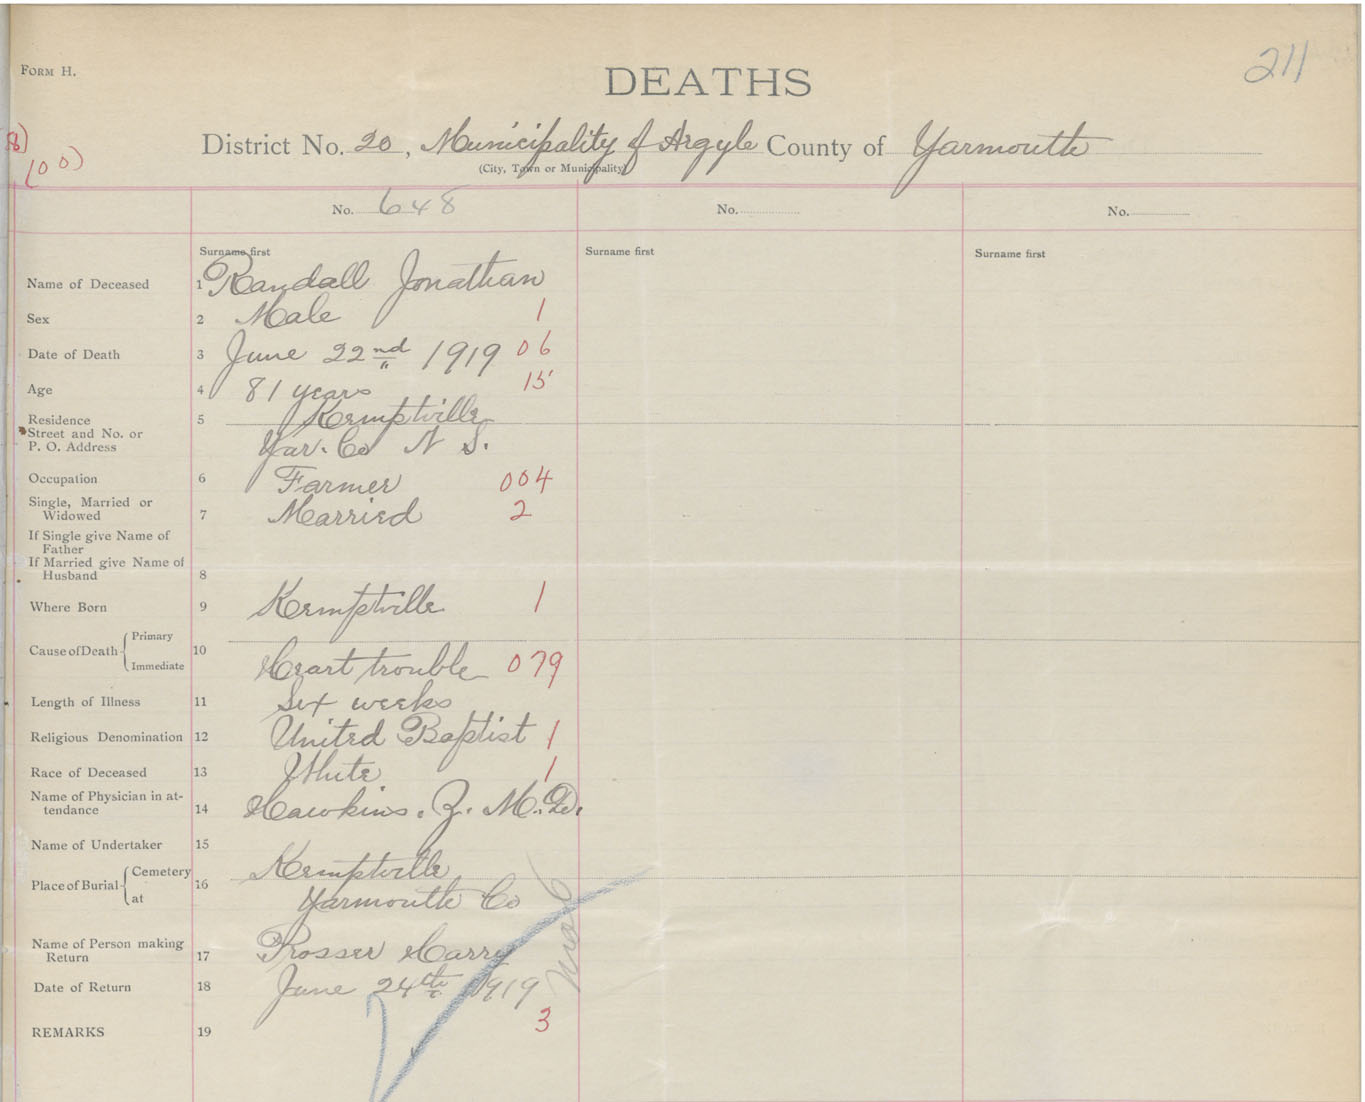 FORM H.
211
DEATHS
8)
(00)
District No. 20, Municipality of Argyle County of Yarmouth
(City, Town or Municipality)
No. 648 No. No.
Surname first Surname first Surname first
Name of Deceased 1 Randall Jonathan
Sex 2 Male 1
Date of Death 3 June 22nd 1919 06
Age 4 81 years 15
Residence 5 Kemptville
Street and No. or
P. O. Address Yar. Co N S.
Occupation 6 Farmer 004
Single, Married or
Widowed 7 Married 2
If Single give Name of
Father
If Married give Name of
Husband 8
Where Born 9 Kemptville 1
Cause of Death Primary 10
Immediate Heart trouble 079
Length of Illness 11 Six weeks
Religious Denomination 12 United Baptist 1
Race of Deceased 13 White 1
Name of Physician in at-
tendance 14 Hawkins. Z. M. D.
Name of Undertaker 15
Place of Burial Cemetery 16 Kemptville
at Yarmouth Co
Name of Person making
Return 17 Prosser Harry
Date of Return 18 June 24th 1919
REMARKS 19 3